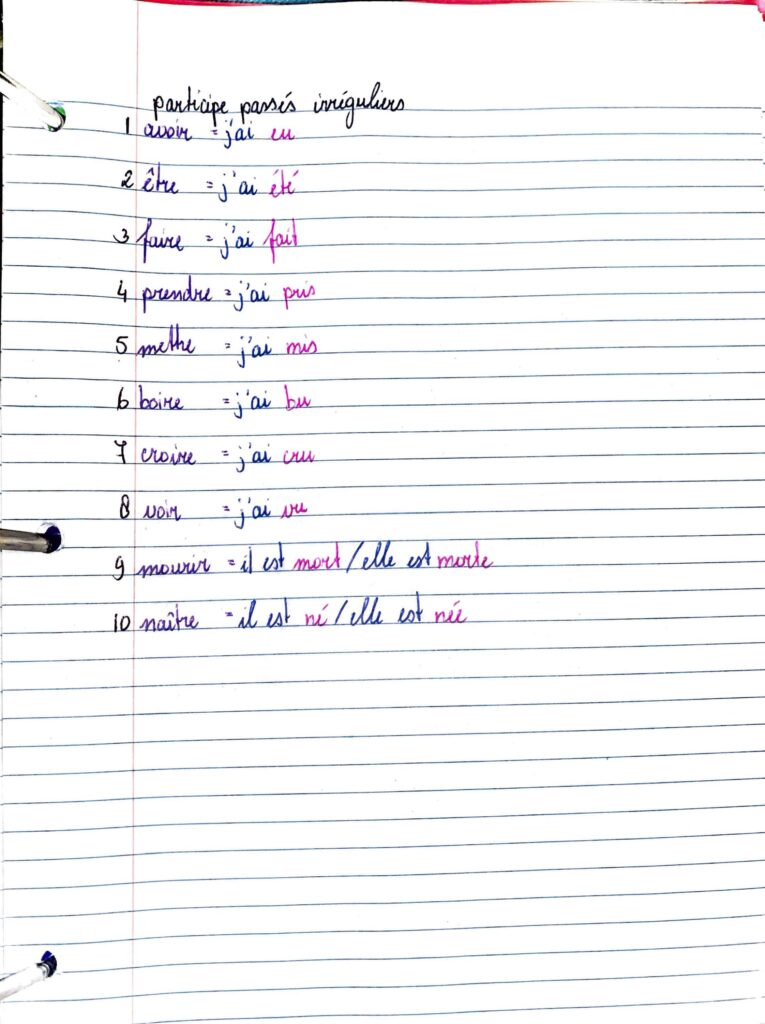 participe passés irréguliers
1 avoir = j'ai eu
2 être = j'ai été
3 faire = j'ai fait
4 prendre = j'ai pris
5 mettre = j'ai mis
6 boire = j'ai bu
7 croire = j'ai cru
8 voir = j'ai vu
9 mourir = il est mort / elle est morte
10 naître = il est né / elle est née